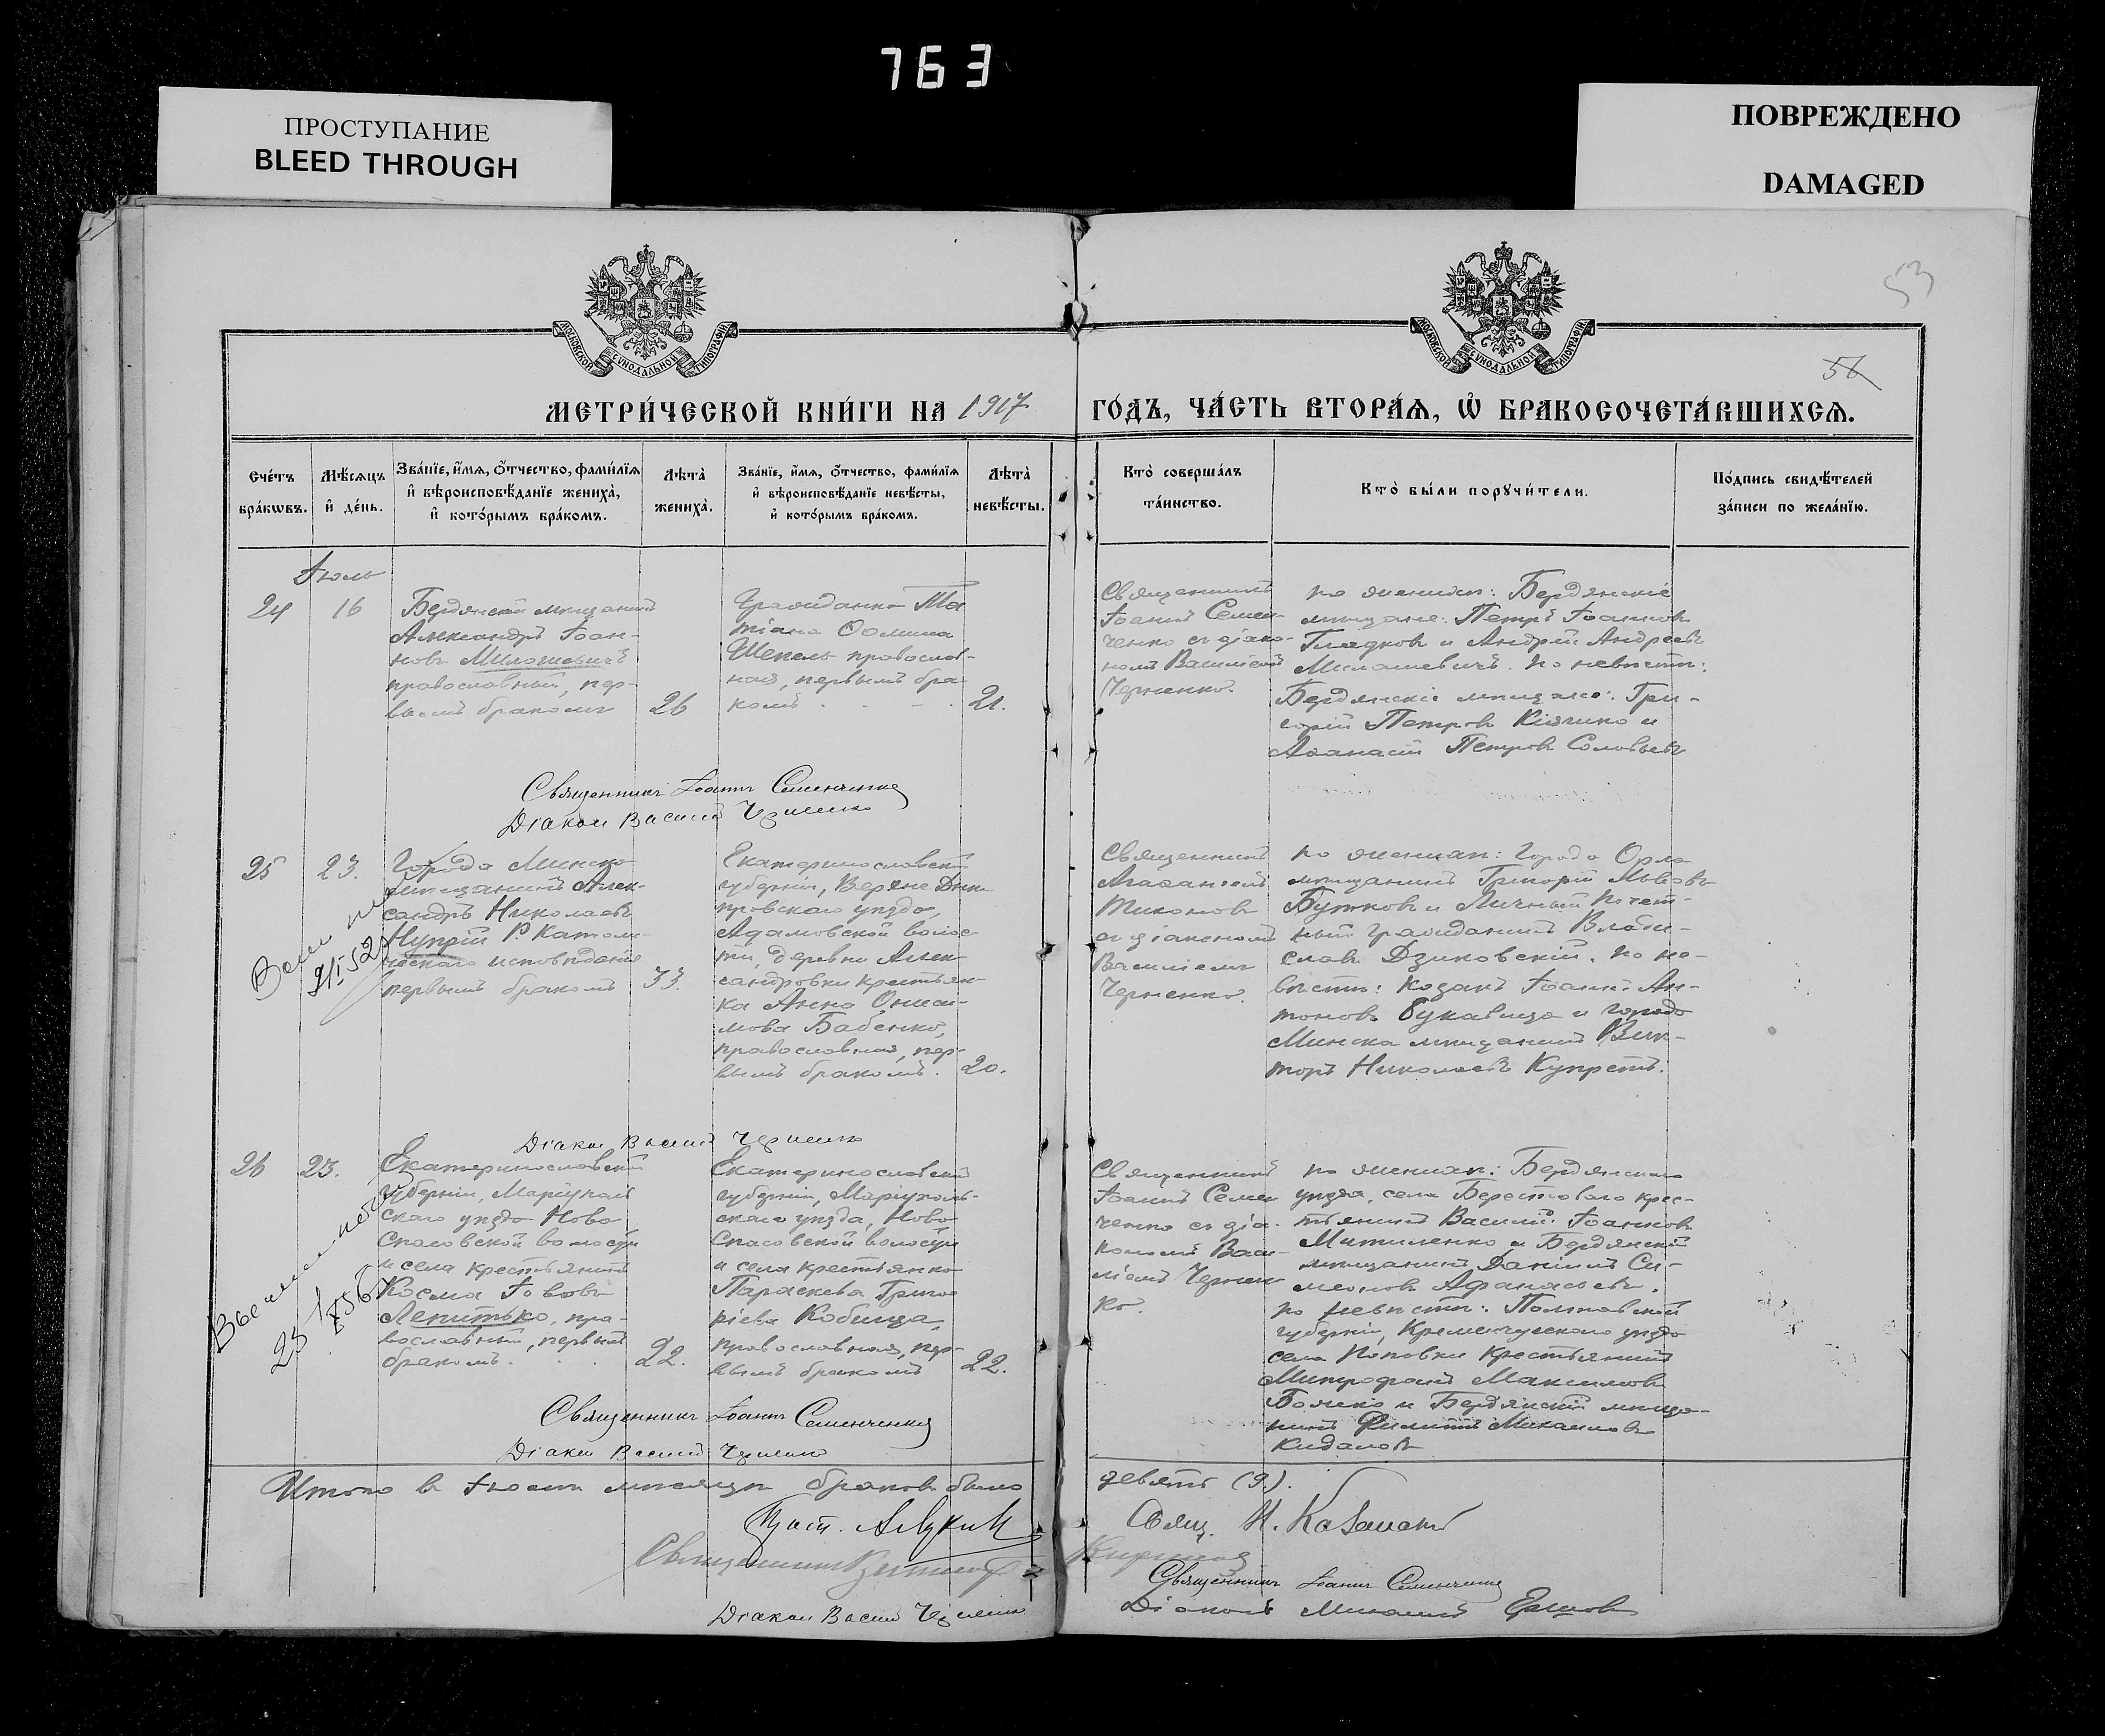 763
ПРОСТУПАНИЕ
BLEED THROUGH
ПОВРЕЖДЕНО
DAMAGED
53
56
МОСКОВСКОЙ СѴНОДАЛЬНОЙ ТИПОГРАФІИ
МОСКОВСКОЙ СѴНОДАЛЬНОЙ ТИПОГРАФІИ
МЕТРИ́ЧЕСКОЙ КНИ́ГИ НА 1917
ГО́ДЪ, ЧА́СТЬ ВТОРА́Ѧ, Ѽ БРАКОСОЧЕТА́ВШИХСѦ.
Сче́тъ
бра́кѡвъ.
Мѣ́сѧцъ
и҆ де́нь.
Зва́нїе, и҆́мѧ, ѻ҆́тчество, фами́лїѧ
и҆ вѣроисповѣ́данїе жениха̀,
и҆ кото́рымъ бра́комъ.
Лѣ́та̀
жениха̀.
Зва́нїе, и҆́мѧ, ѻ҆́тчество, фами́лїѧ
и҆ вѣроисповѣ́данїе невѣ́сты,
и҆ кото́рымъ бра́комъ.
Лѣ́та̀
невѣ́сты.
Кто̀ соверша́лъ
та́инство.
Кто̀ бы́ли порꙋчи́тели.
По́дпись свидѣ́телей
за́писи по жела́нїю.
Іюль
24
16
Бердянскій мѣщанинъ
Александръ Іоан-
новъ Милошевичъ
православный, пер-
вымъ бракомъ
26
Гражданка Та
тіана Ѳомина
Шепель православ-
ная, первымъ бра-
комъ
21.
Священникъ
Іоаннъ Семен-
ченко съ діако-
номъ Василіемъ
Черненко.
по женихѣ: Бердянскіе
мѣщане: Петръ Іоанновъ
Гладковъ и Андрей Андреевъ
Милошевичъ. по невѣстѣ:
Бердянскіе мѣщане: Гри-
горій Петровъ и
Аѳанасій Петровъ Соловьевъ
Священникъ Іоаннъ Семенченко
Діаконъ Василій Черненко
25
23.
Города Минска
мѣщанинъ Алек-
сандръ Николаевъ
Р. Католи-
ческаго исповѣданія
первымъ бракомъ
33.
Екатеринославской
губерніи, Верхне Днѣ
провскаго уѣзда,
Адамовской волос-
ти, деревни Алек-
сандровки крестьян-
ка Анна Ониси-
мова Бабенко,
православная, пер-
вымъ бракомъ.
20.
Священникъ
Тихоновъ
съ діакономъ
Василіемъ
Черненко.
по женихѣ: Города Орла
мѣщанинъ Григорій Львовъ
Бутковъ и Личный почет-
ный гражданинъ Влади-
славъ Дзиковскій. по не-
вѣстѣ: Козакъ Іоаннъ Ан-
тоновъ и города
Минска мѣщанинъ Вик-
торъ Николаевъ Купретъ.
Діаконъ Василій Черненко
26
23.
Екатеринославской
губерніи, Маріуполь
скаго уѣзда Ново
Спасовской волости
и села крестьянинъ
Косма Іововъ
пра-
вославный, первымъ
бракомъ.
22.
Екатеринославской
губерніи, Маріуполь-
скаго уѣзда, Ново
Спасовской волости
и села крестьянка
Параскева Григо
ріева Кобица,
православная, пер-
вымъ бракомъ
22.
Священникъ
Іоаннъ Семен
ченко съ діа-
кономъ Васи-
ліемъ Чернен
ко.
по женихѣ: Бердянскаго
уѣзда, села Берестоваго крес-
тьянинъ Василій Іоанновъ
Митиленко и Бердянскій
мѣщанинъ Даніилъ Си-
меоновъ Афанасьевъ.
по невѣстѣ: Полтавской
губерніи, Кременчугскаго уѣзда
села Поповки крестьянинъ
Митрофанъ Максимовъ
и Бердянскій мѣща-
нинъ Филиппъ Михаиловъ
Кидаловъ
Священникъ Іоаннъ Семенченко
Діаконъ Василій Черненко
Итого въ Іюлѣ мѣсяцѣ браковъ было
девять (9).
Свящ.
Священникъ
Священникъ Іоаннъ Семенченко
Діаконъ Василій Черненко
Діаконъ Михаилъ Ершовъ